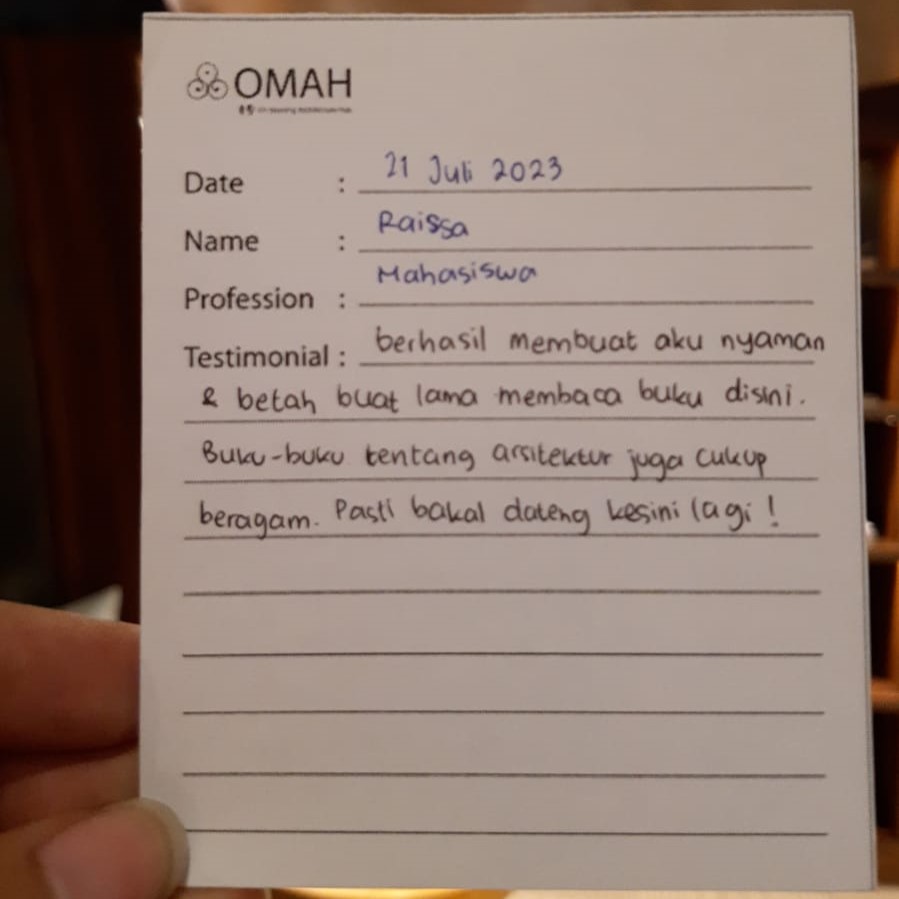 OMAH
Date : 21 Juli 2023
Name : Raissa
Profession : Mahasiswa
Testimonial : berhasil membuat aku nyaman
& betah buat lama membaca buku disini.
Buku-buku tentang arsitektur juga cukup
beragam. Pasti bakal dateng kesini lagi !